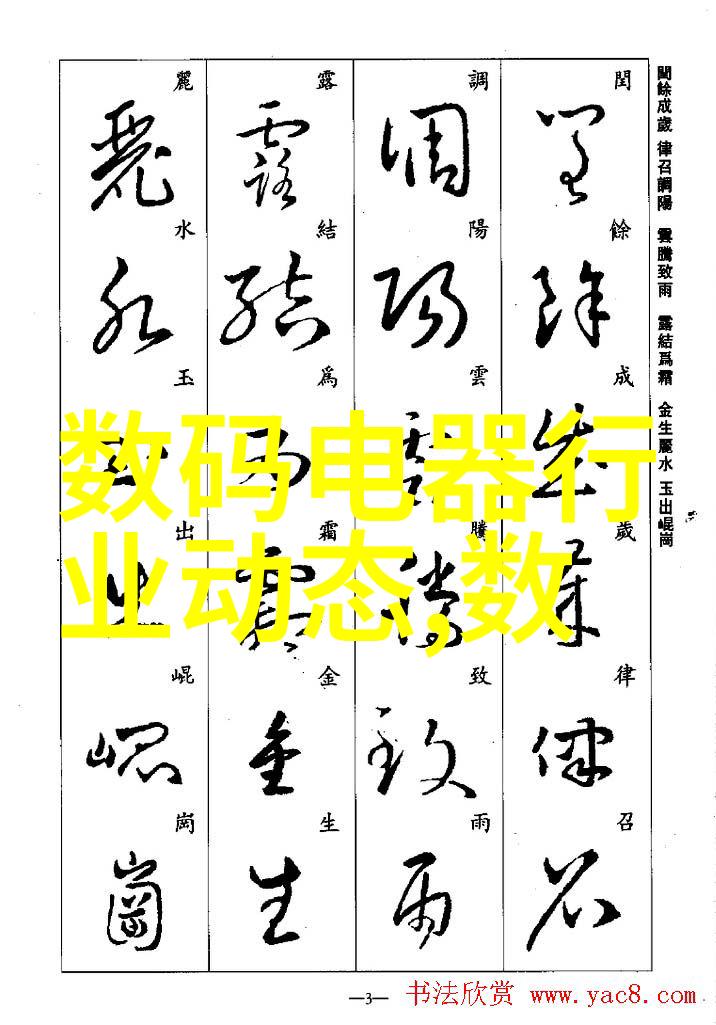 閏餘成歲 律召調陽 雲騰致雨 露結爲霜 金生麗水 玉出崐崗
閏
餘
成
歲
律
召
調
陽
雲
騰
致
雨
露
結
爲
霜
金
生
麗
水
玉
出
崐
崗
数码电器行
业动态,数
—3—
书法欣赏 www.yac8.com